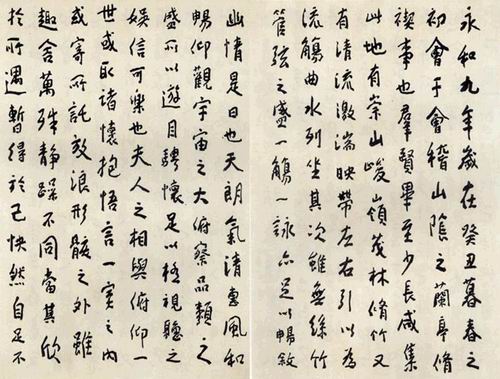 永和九年歲在癸丑暮春之
初會于會稽山陰之蘭亭脩
禊事也羣賢畢至少長咸集
此地有崇山峻嶺茂林脩竹又
有清流激湍映帶左右引以為
流觴曲水列坐其次雖無絲竹
管弦之盛一觴一詠亦足以暢敘
幽情是日也天朗氣清惠風和
暢仰觀宇宙之大俯察品類之
盛所以遊目騁懷足以極視聽之
娛信可樂也夫人之相與俯仰一
世或取諸懷抱悟言一室之內
或寄所託放浪形骸之外雖
趣舍萬殊靜躁不同當其欣
於所遇暫得於己快然自足不